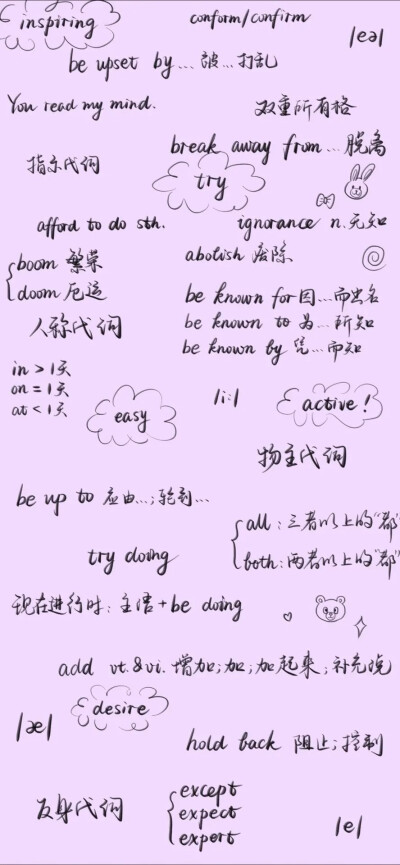 inspiring
conform/confirm
/eə/
be upset by...被...打乱
You read my mind.
双重所有格
break away from...脱离
指示代词
try
afford to do sth.
ignorance n.无知
boom 繁荣
doom 厄运
abolish 废除
be known for 因...而出名
be known to 为...所知
be known by 凭...而知
人称代词
in > 1天
on = 1天
at < 1天
easy
/i:/
active!
物主代词
be up to 应由...;轮到...
all:三者以上的"都"
both:两者以上的"都"
try doing
现在进行时:主语+be doing
add vt.&vi.增加;加;加起来;补充说
desire
/æ/
hold back 阻止;控制
反身代词
except
expect
export
/e/